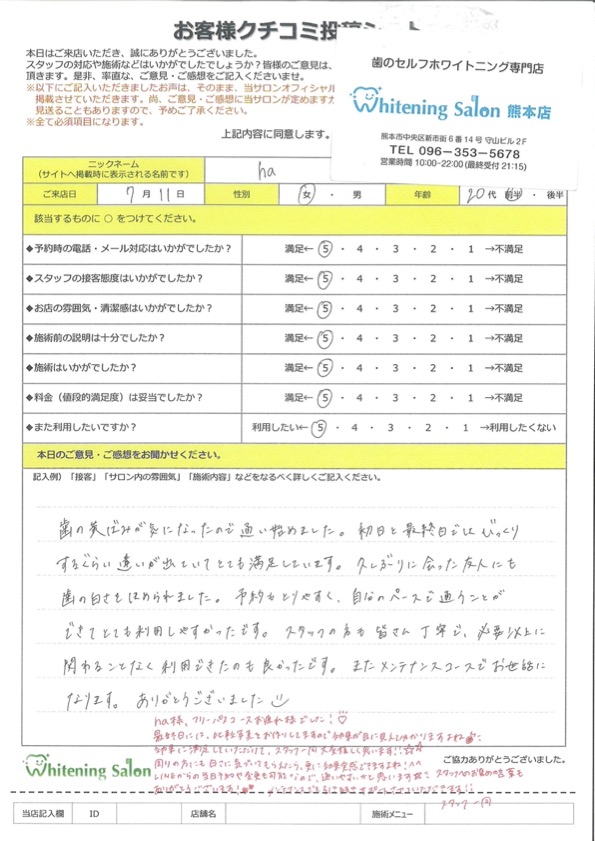 お客様クチコミ投稿シート
本日はご来店いただき、誠にありがとうございました。
スタッフの対応や施術などはいかがでしたでしょうか?皆様のご意見は、
頂きます。是非、率直な、ご意見・ご感想をご記入くださいませ。
※以下にご記入いただきましたお声は、そのまま、当サロンオフィシャル
掲載させていただきます。尚、ご意見・ご感想に当サロンが定めますガ
見送ることもありますので、予めご了承ください。
※全て必須項目になります。
上記内容に同意します。
歯のセルフホワイトニング専門店
Whitening Salon 熊本店
熊本市中央区新市街6番14号 守山ビル2F
TEL 096-353-5678
営業時間 10:00-22:00(最終受付 21:15)
ニックネーム
(サイトへ掲載時に表示される名前です) ha
ご来店日 7月11日 性別 女・男 年齢 20代 前半・後半
該当するものに ○ をつけてください。
◆予約時の電話・メール対応はいかがでしたか? 満足← 5・4・3・2・1 →不満足
◆スタッフの接客態度はいかがでしたか? 満足← 5・4・3・2・1 →不満足
◆お店の雰囲気・清潔感はいかがでしたか? 満足← 5・4・3・2・1 →不満足
◆施術前の説明は十分でしたか? 満足← 5・4・3・2・1 →不満足
◆施術はいかがでしたか? 満足← 5・4・3・2・1 →不満足
◆料金(値段的満足度)は妥当でしたか? 満足← 5・4・3・2・1 →不満足
◆また利用したいですか? 利用したい← 5・4・3・2・1 →利用したくない
本日のご意見・ご感想をお聞かせください。
記入例)「接客」「サロン内の雰囲気」「施術内容」などをなるべく詳しくご記入ください。
歯の黄ばみが気になったので通い始めました。初日と最終日ではびっくり
するぐらい違いが出ていてとても満足しています。久しぶりに会った友人にも
歯の白さをほめられました。予約もとりやすく、自分のペースで通うことが
できてとても利用しやすかったです。スタッフの方も皆さん丁寧で、必要以上に
関わることなく利用できたのも良かったです。またメンテナンスコースでお世話に
なります。ありがとうございました
ha様、フリーパスコースお疲れ様でした!♡
最終日に、比較写真をお作りしてますので効果が目に見えて分かりますよね
効果に満足していただけて、スタッフ一同大変嬉しく思います!!
周りの方にも白さに気づいてもらえたら、更に効果実感できますよね!^^
LINEからの当日予約や変更も可能なので、通いやすいかと思います スタッフへのお褒めの言葉も
ありがとうございます!
スタッフ一同
Whitening Salon
ご協力ありがとうございました。
当店記入欄 ID 店舗名 施術メニュー